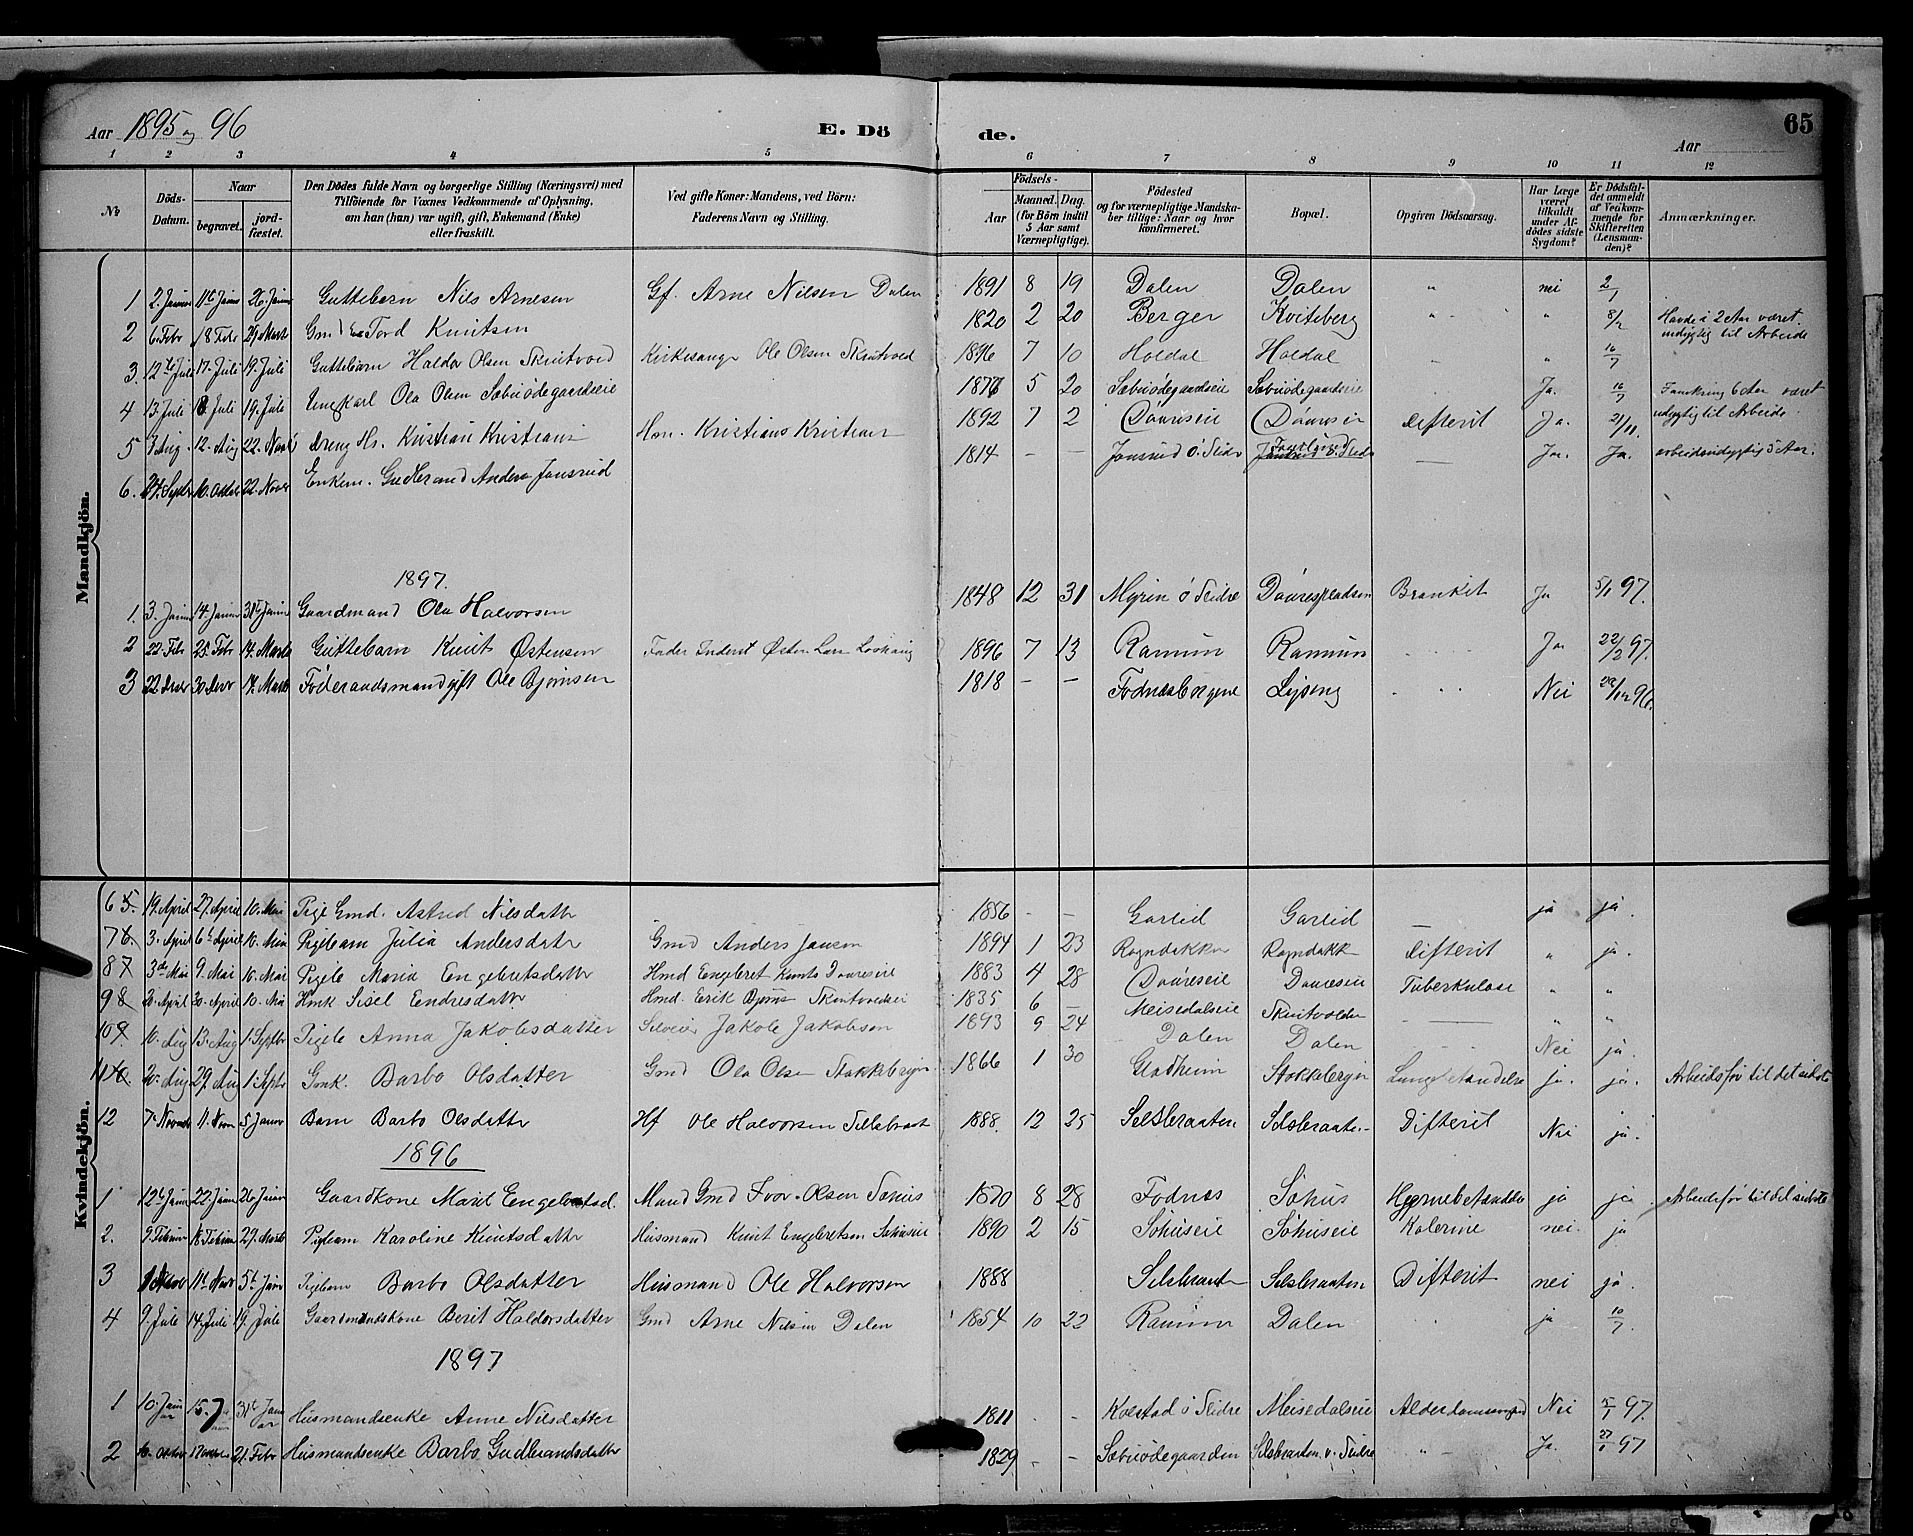 Aar 1895 og 96 E. Dö de. Aar 65
1 2 3 4 5 6 7 8 9 10 11 12
No Döds-Datum. Naar begravet. jord-fæstet. Den Dödes fulde Navn og borgerlige Stilling (Næringsvei) med Tilföiende for Voxnes Vedkommende af Oplysning, om han (hun) var ugift, gift, Enkemand (Enke) eller fraskilt. Ved gifte Koner: Mandens, ved Börn: Faderens Navn og Stilling. Födsels- Aar Maaned. Dag. (for Börn indtil 5 Aar samt Værnepligtige). Födested og for værnepligtige Mandska-ber tillige: Naar og hvor konfirmeret. Bopæl. Opgiven Dödsaarsag. Har Læge været tilkaldt under Af-dödes sidste Sygdom? Er Dödsfal-det anmeldt af Vedkom-mende for Skifteretten (Lensman-den)? Anmærkninger.
Mandkjön.
1 2. Janu 11te Janu 26 Janu Guttebarn Nils Arnesen Gf. Arne Nilsen Dalen 1891 8 19 Dalen Dalen " nei 2/1
2 6 Febr 18 Febr 29 Marts Gmd Tord Knutsen 1820 2 20 Berger Kviteberg " " " 8/2 Havde i 2 Aar været udygtig til Arbeide
3. 12te Juli 17. Juli 19. Juli Guttebarn Haldor Olsen Skrutvold Kirkesanger Ole Olsen Skrutvold 1896 7 10 Holdal Holdal " " 16/7
4 13. Juli 18 Juli 19. Juli Ungkarl Ola Olsen Sæbuødegaardseie 1876 5 20 Sæbuødegaardseie Sæbuødegaardseie Ja. 16/7 6 Aar været udygtig til Arbeide.
5 7 Aug. 12. Aug 22. Nov Dreng Hs. Kristian Kristians Hsm. Kristians Kristians 1892 7 2 Døvreseie Døvreseie Difterit Ja. 21/11.
6. 24. Septbr 10. Octbr 22. Novbr Enkem. Gudbrand Anders Jonsrud 1814 - - Jonsrud Ø. Slidre Ø. Slidre — Ja. Ja. arbeidsudygtig 5 Aar.
1897.
1. 3. Janu 14. Janu 31te Janu Gaardmand Ola Halvorsen 1848 12 31 Myrin Ø Slidre Døvrespladsen Bronkit Ja 5/1 97.
2 22. Febr 25. Febr 14. Marts Guttebarn Knut Østensen Fader Inderst Østen Lars 1896 7 13 Ramun Ramun " Ja 22/2 97.
3 22. Decbr 30 Decbr 14. Marts Føderaadsmand gift Ole Bjørnsen 1818 - - Fodnæsbergene Nei 28/12 96.
Kvindekjön.
6 5. 19. April 27. April 10. Mai Pige Gmd. Astrid Nilsdatter 1856 - - Garlid Garlid — ja ja.
7 6. 3. April 6te April 10. Mai Pigebarn Julia Andersdatr Gmd Anders Jansen 1894 1 23 Rogndokken Rogndokk Difterit " ja.
8 7 3de Mai 9. Mai 10. Mai Pigeb Maria Engebretsdatter Hmd Engebret Knuts Døvreseie 1883 4 28 Døvreseie Døvreseie Tuberkulose " "
9 8 20. April 30. April 10. Mai Hmk Sisel Endresdatter Hmd. Erik Bjørns Skrutvoldseie 1835 6 - Meisedalseie Skrutvolden — " "
10 9. 10. Aug 13. Aug 1. Septbr Pigeb Anna Jakobsdatter Selveier Jakob Jakobsen 1893 9 24 Dalen Dalen Nei ja.
11 10. 20. Aug 29. Aug 1. Septbr Gmk. Barbo Olsdatter Gmd Ola Olsen Stokkebergin 1866 1 30 Gladheim Stokkebergin Lungebetændelse ja. ja. Arbeidsfør til det sidste
12 7 Novmbr 11. Novm 5 Januar Barn Barbo Olsdatter Hf Ole Halvorsen Selsbraat 1888. 12 25 Selsbraaten Selsbraaten Difterit Nei ja.
1896
1 12te Janu 22. Janu 26 Januar Gaardkone Marit Engebretsd. Mand Gmd Ivar Olsen Søhus 1870 8 28 Fodnæs Søhus Hjernebetændelse ja ja Arbeidsfør til det sidste
2. 9 Februar 18 Februar 29. Marts Pigebarn Karoline Knutsdatter Husmand Knut Engebretsen Søhuseie 1890 2 15 Søhuseie Søhuseie Kolerine nei. ja
3 11te Nov 5te Janu Pigebarn Barbo Olsdatter Husmand Ole Halvorsen 1888 Selsbraaten Selsbraaten Difterit nei ja.
4 9. Juli 14. Juli 19. Juli Gaardmandskone Berit Haldorsdatter Gmd Arne Nilsen Dalen 1854 10 22 Ramun Dalen " ja 10/7.
1897
1 10. Januar 15. Januar 31te Januar Husmandsenke Anne Nilsdatter 1811 - - Kolstad Ø Slidre Meisedalseie Alderdomssvaghed Nei 5/1 97.
2 Octbr 17 21. Febr Husmandsenke Barbo Gudbrandsdatter 1829 - - Sæbuødegaarden Selsbraaten Ø. Slidre " Ja. 27/1 97